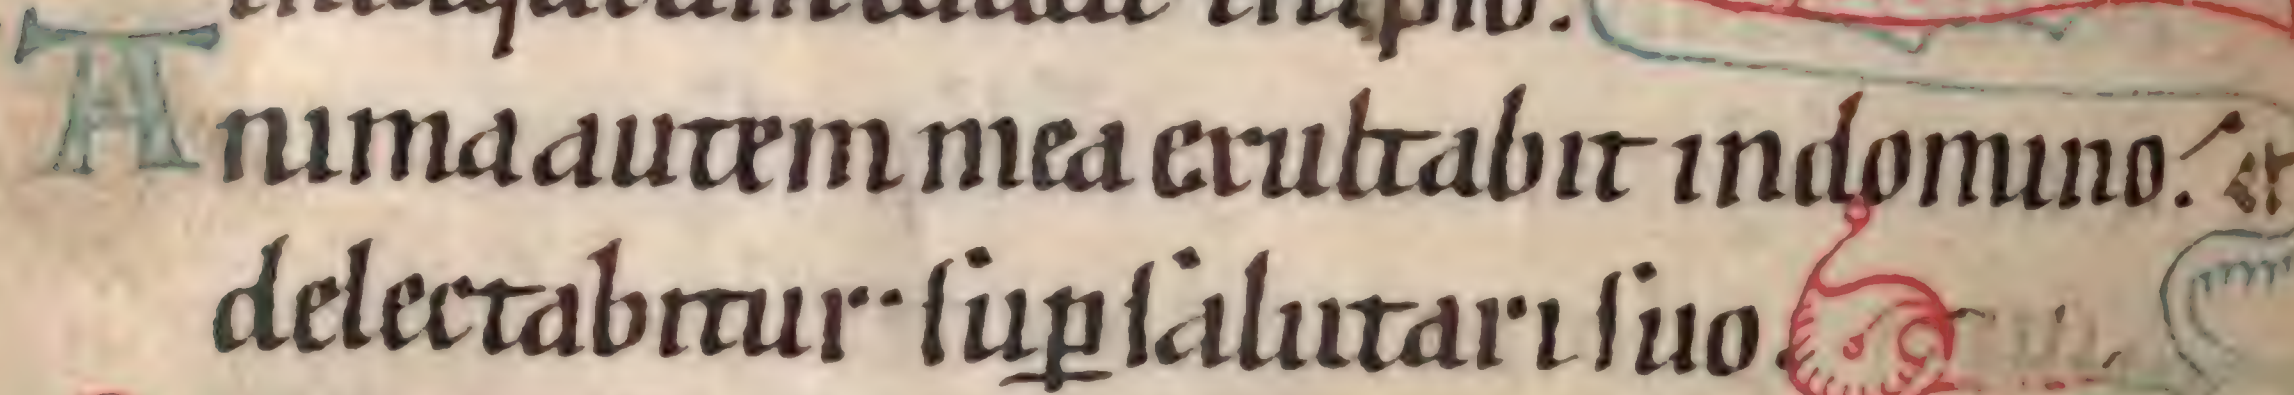 impio.
Anima autem mea exultabit in domino. et
delectabitur· sup̱ salutari suo.